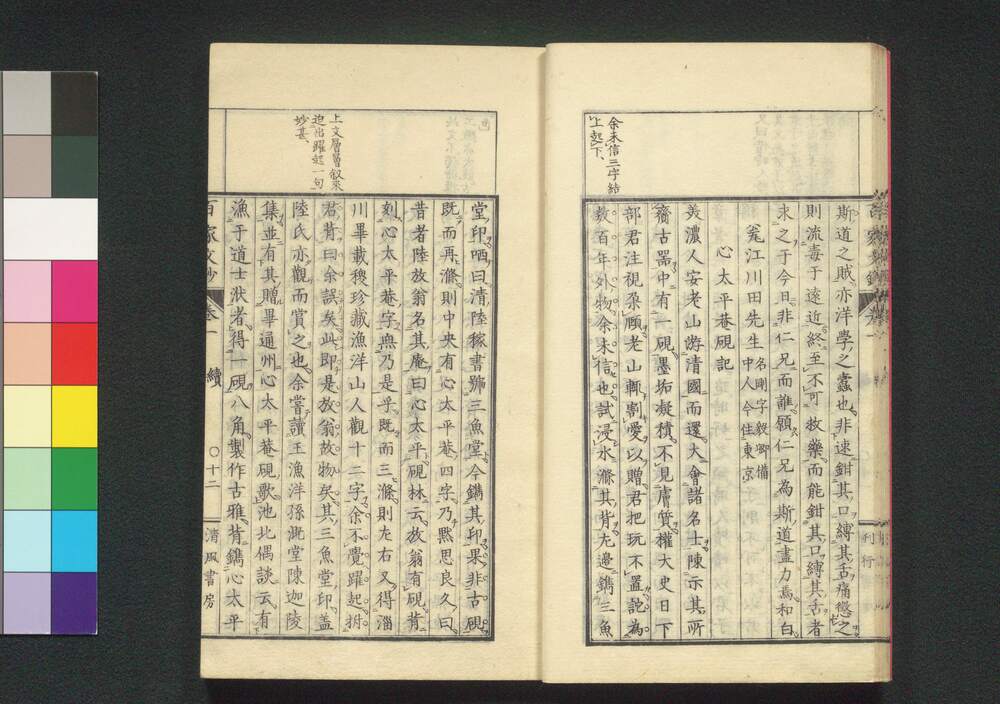 余未信三字結
上起下、
斯道之賊亦洋學之蠹也非速鉗其口縛其舌痛懲之
則流毒于遠近終至不可救藥而能鉗其口縛其舌者
求之于今日非仁兄而誰願仁兄為斯道盡力焉和白
甕江川田先生 名剛字毅卿備
中人今住東京
心太平菴硯記
美濃人安老山游清國而還大會諸名士陳示其所
齎古器中有一硯墨垢凝積不見膚質權大史日下
部君注視朶頤老山輒割愛以贈君把玩不置詑為
数百年外物余未信也試浸水滌其背左邊鐫三魚
上文層層叙來
迫出躍起一句
妙甚、
堂印哂曰清陸稼書號三魚堂今鐫其印果非古硯
既而再滌則中央有心太平菴四字乃黙思良久曰
昔者陸放翁名其庵曰心太平硯林云放翁有硯背
刻心太平菴字無乃是乎既而三滌則左右又得淄
川畢載稷珍藏漁洋山人觀十二字余不覺躍起拊
君背曰余誤矣此即是放翁故物矣其三魚堂印盖
陸氏亦觀而賞之也余嘗讀王漁洋孫漑堂陳迦陵
集並有其贈畢通州心太平菴硯歌池北偶談云有
漁于道士洑者得一硯八角製作古雅背鐫心太平
百家文鈔 卷一 續 〇十二 清風書房